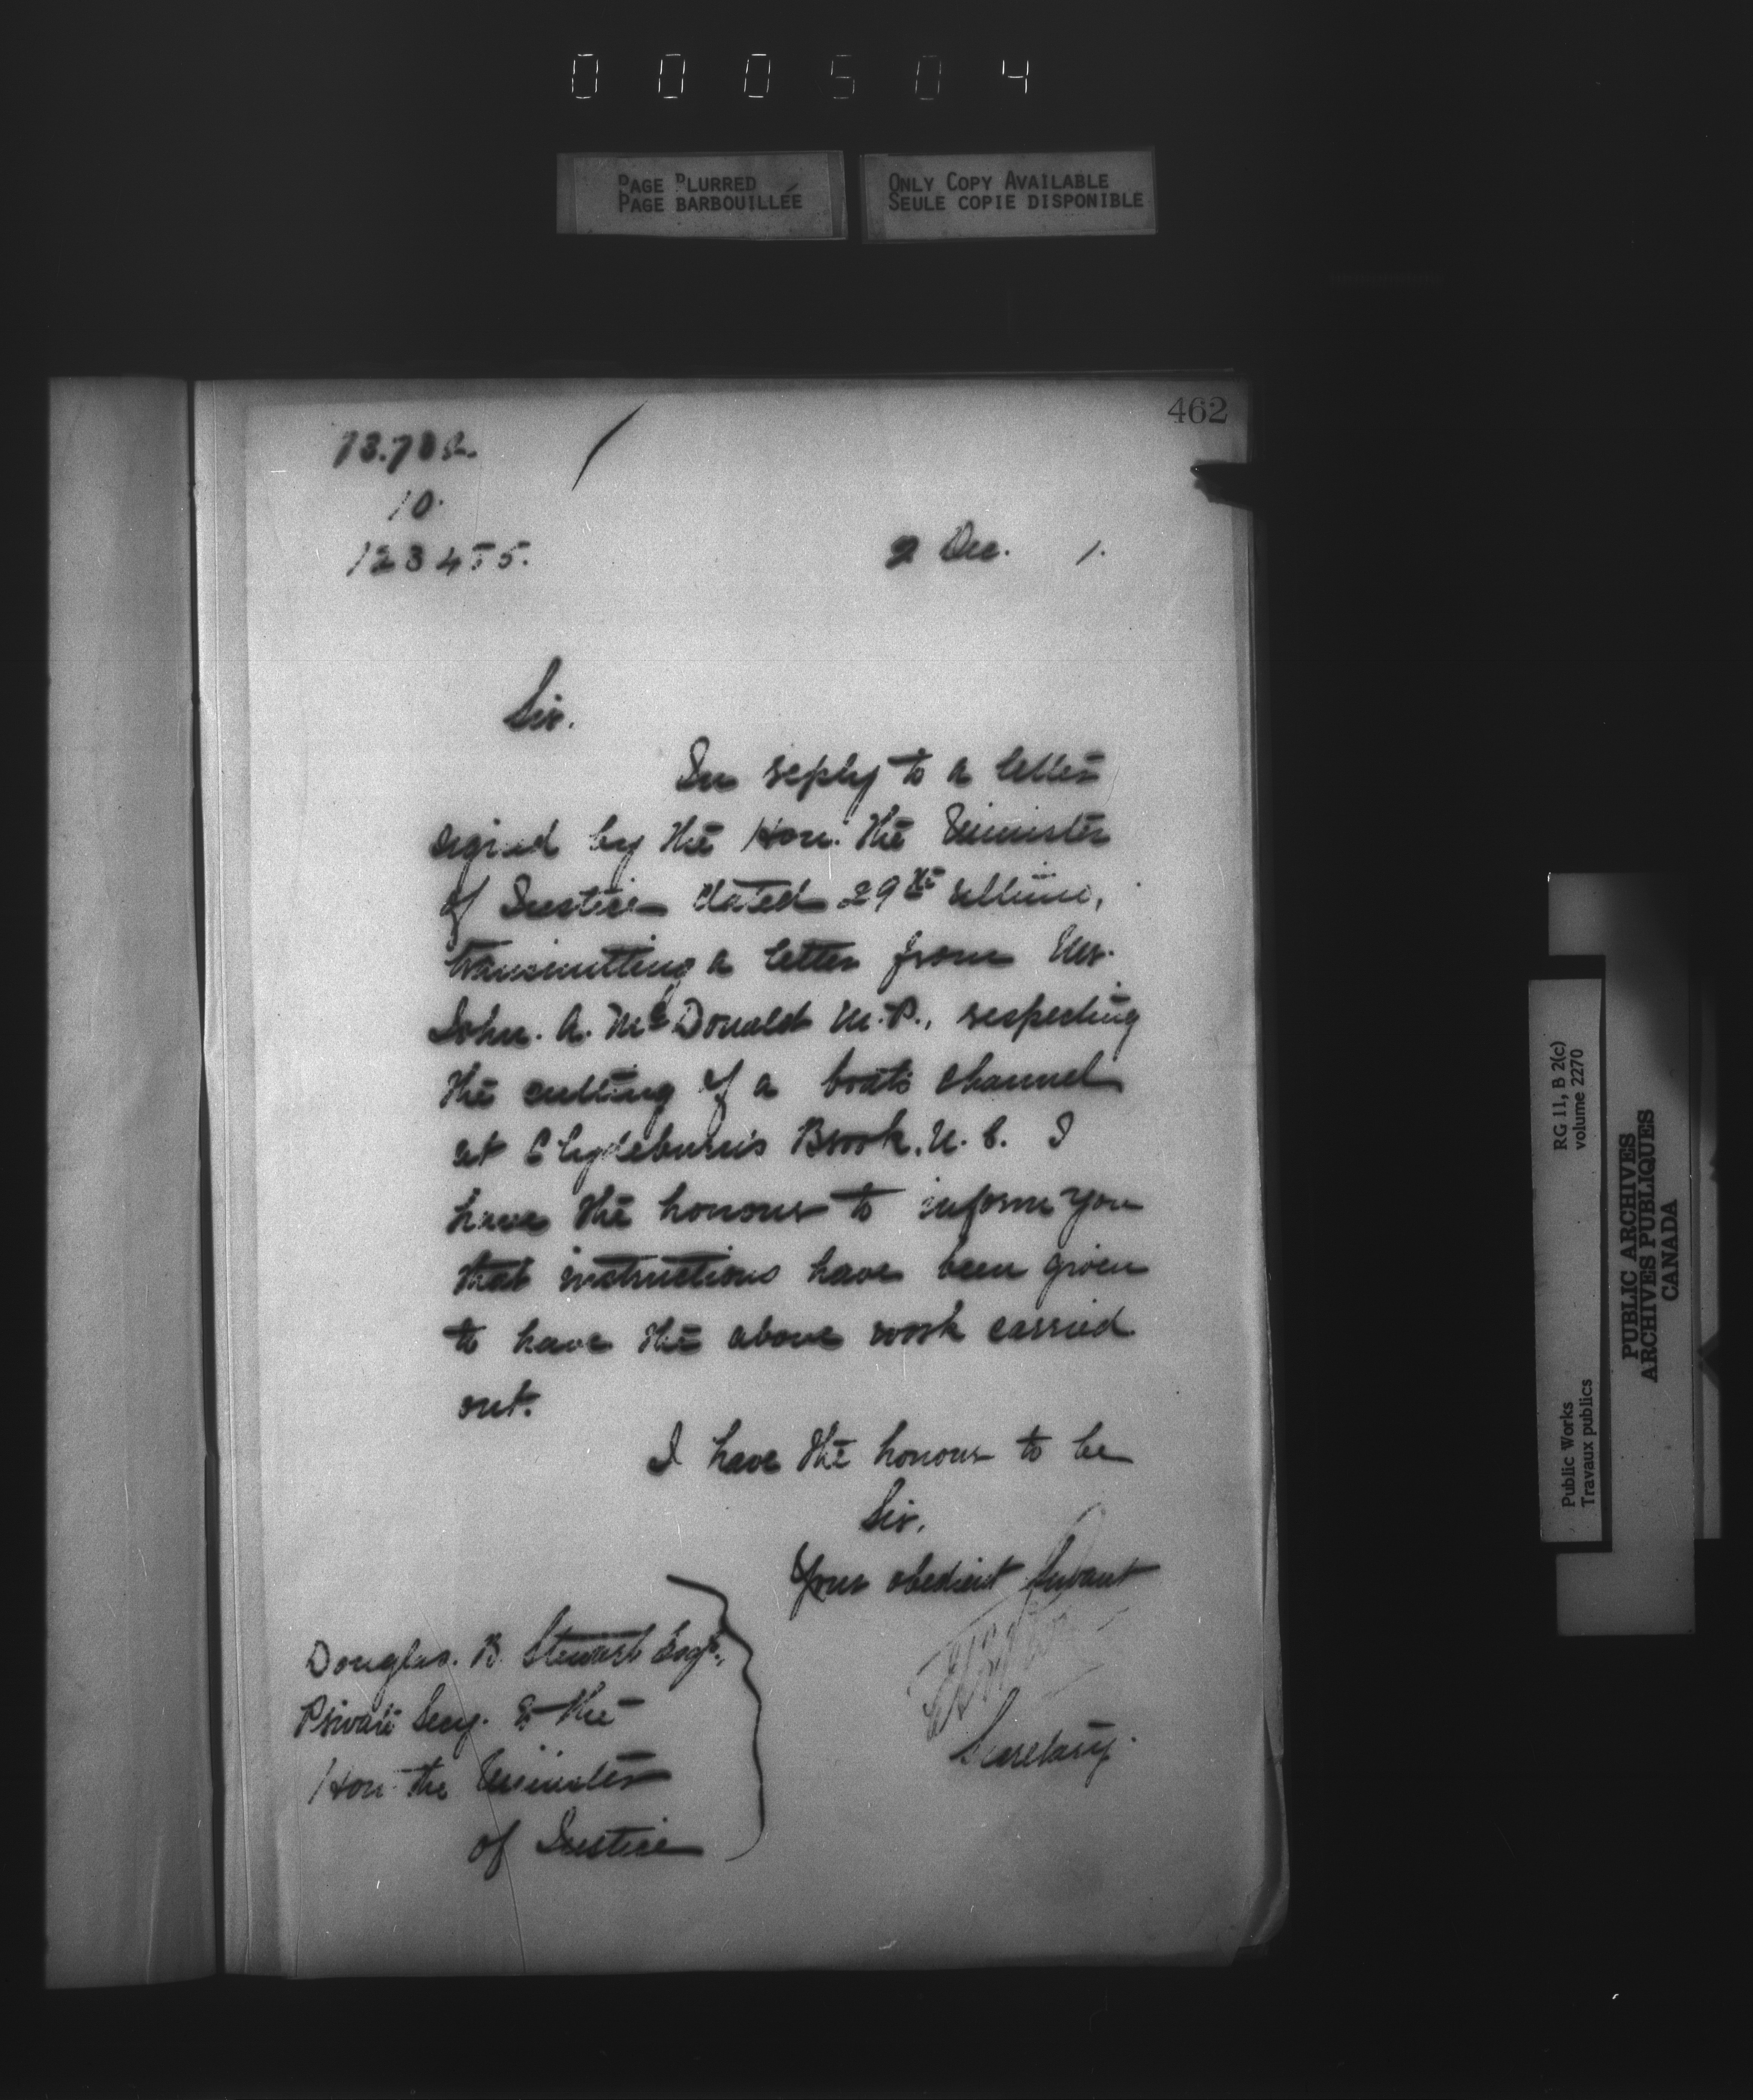 000504
PAGE BLURRED
PAGE BARBOUILLÉE
ONLY COPY AVAILABLE
SEULE COPIE DISPONIBLE
462
10.
123455.
2 Dec. 1.
Sir.
In reply to a letter
signed by the Hon. the Minister
of Justice dated 29th ultimo,
transmitting a letter from Mr.
John. A. McDonald M.P., respecting
the cutting of a boats channel
at Clydeburn's Brook, I
have the honour to inform you
that instructions have been given
to have the above work carried
out.
I have the honour to be
Sir.
Your obedient Servant
Secretary.
Douglas. B. Stewart Esqr.,
Private Secy. to the
Hon. the Minister
of Justice
RG 11, B 2(c)
volume 2270
Public Works
Travaux publics
PUBLIC ARCHIVES
ARCHIVES PUBLIQUES
CANADA